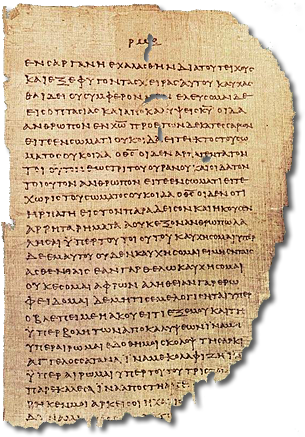 ΕΝ ϹΑΡΓΑΝΗ ΕΧΑΛΑϹΘΗΝ ΔΙΑ ΤΟΥ ΤΕΙΧΟΥϹ
ΚΑΙ ΕΞΕΦΥΓΟΝ ΤΑϹ ΧΕΙΡΑϹ ΑΥΤΟΥ ΚΑΥΧΑϹ
ΘΑΙ ΔΕΙ ΟΥ ϹΥΜΦΕΡΟΝ ΜΕΝ ΕΛΕΥϹΟΜΑΙ ΔΕ
ΕΙϹ ΟΠΤΑϹΙΑϹ ΚΑΙ ΟΙΔΑ
ΑΝΘΡΩΠΟΝ ΕΝ ΧΡΩ ΠΡΟ ΕΤΩΝ ΔΕΚΑΤΕϹϹΑΡΩΝ
ΕΙΤΕ ΕΝ ϹΩΜΑΤΙ ΟΥΚ ΟΙΔΑ ΕΙΤΕ ΕΚΤΟϹ ΤΟΥ ϹΩ
ΜΑΤΟϹ ΟΥΚ ΟΙΔΑ Ο ΘϹ ΟΙΔΕΝ ΑΡΠΑΓΕΝΤΑ ΤΟΝ
ΤΟΙΟΥΤΟΝ ΕΩϹ ΤΡΙΤΟΥ ΟΥΡΑΝΟΥ ΚΑΙ ΟΙΔΑ ΤΟΝ
ΤΟΙΟΥΤΟΝ ΑΝΘΡΩΠΟΝ ΕΙΤΕ ΕΝ ϹΩΜΑΤΙ ΕΙΤΕ
ΧΩΡΙϹ ΤΟΥ ϹΩΜΑΤΟϹ ΟΥΚ ΟΙΔΑ Ο ΘϹ ΟΙΔΕΝ ΟΤΙ
ΗΡΠΑΓΗ ΕΙϹ ΤΟΝ ΠΑΡΑΔΕΙϹΟΝ ΚΑΙ ΗΚΟΥϹΕΝ
ΑΡΡΗΤΑ ΡΗΜΑΤΑ Α ΟΥΚ ΕΞΟΝ ΑΝΘΡΩΠΩ ΛΑ
ΛΗϹΑΙ ΥΠΕΡ ΤΟΥ ΤΟΙΟΥΤΟΥ ΚΑΥΧΗϹΟΜΑΙ ΥΠΕΡ
ΔΕ ΕΜΑΥΤΟΥ ΟΥΔΕΝ ΚΑΥΧΗϹΟΜΑΙ ΕΙ ΜΗ ΕΝ ΤΑΙϹ
ΑϹΘΕΝΕΙΑΙϹ ΕΑΝ ΓΑΡ ΘΕΛΩ ΚΑΥΧΗϹΟΜΑΙ
ΟΥΚ ΕϹΟΜΑΙ ΑΦΡΩΝ ΑΛΗΘΕΙΑΝ ΓΑΡ ΕΡΩ
ΦΕΙΔΟΜΑΙ ΔΕ ΜΗ ΤΙϹ ΕΜΕ ΛΟΓΙϹΗΤΑΙ ΥΠΕΡ
Ο ΒΛΕΠΕΙ ΜΕ Η ΑΚΟΥΕΙ ΤΙ ΕΞ ΕΜΟΥ ΚΑΙ ΤΗ
ΥΠΕΡΒΟΛΗ ΤΩΝ ΑΠΟΚΑΛΥΨΕΩΝ ΙΝΑ ΜΗ
ΥΠΕΡΑΙΡΩΜΑΙ ΕΔΟΘΗ ΜΟΙ ϹΚΟΛΟΨ ΤΗ ϹΑΡΚΙ
ΑΓΓΕΛΟϹ ϹΑΤΑΝΑ ΙΝΑ ΜΕ ΚΟΛΑΦΙΖΗ ΙΝΑ
ΥΠΕΡΑΙΡΩΜΑΙ ΥΠΕΡ ΤΟΥΤΟΥ ΤΡΙϹ
ΠΑΡΕΚΑΛΕϹΑ ΙΝΑ ΑΠΟϹΤΗ
ΡΗΚΕΝ ΜΟΙ ΑΡΚΕΙ ϹΟΙ Η